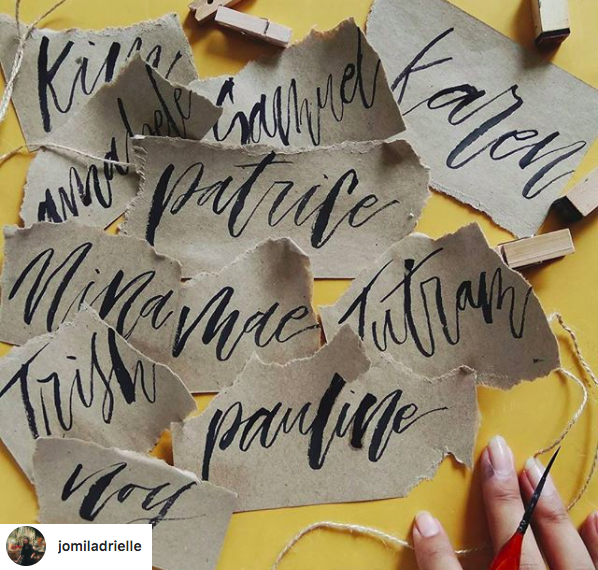 Kim
Samuel
Karen
annabele
Patrice
Nina
mae
Tutram
Trish
pauline
Noy
jomiladrielle